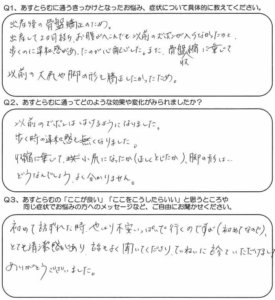 Q1、あすとらむに通うきっかけとなったお悩み、症状について具体的に教えてください。
出産後の骨盤矯正のため。
出産して2ヶ月経ち、お腹がへこんでも以前のズボンが入らなかったのと、
歩くのに違和感があったのが心配でした。また、骨盤矯正に
以前の大気や脚の形も矯正したかったため。
Q2、あすとらむに通ってどのような効果や変化がみられましたか？
以前のズボンははけるようになりました。
歩く時の違和感も無くなりました。
脚の形は…
どうなんでしょう、よく分かりません。
Q3、あすとらむの「ここが良い」「ここをこうしたらいい」と思うところや
同じ症状でお悩みの方へのメッセージなど、ご自由にお聞かせください。
初めて訪れた時、やはり不安いっぱいで行くのですが（初めてなので）、
とても清潔感があり 話をよく聞いてくださり、ていねいに診ていただけました
ありがとうございました。